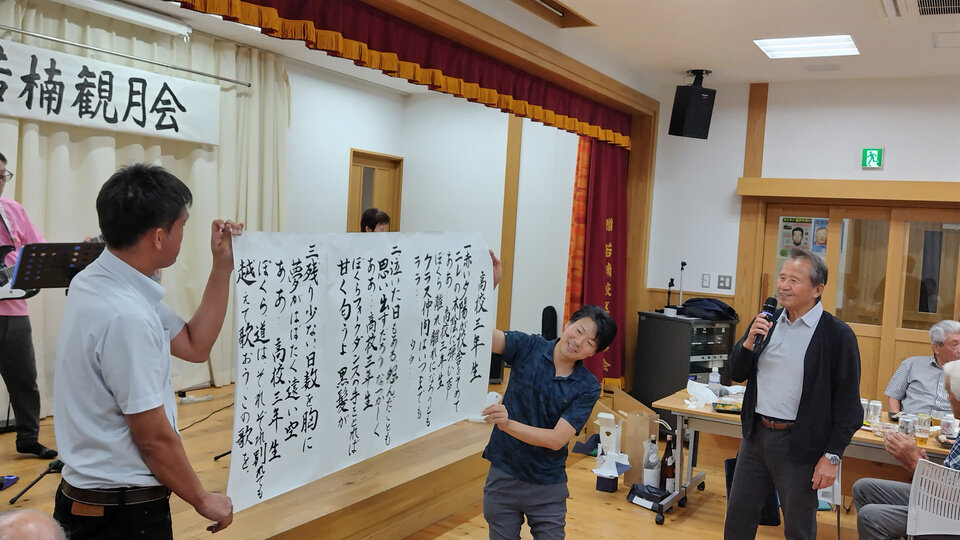 若楠観月会
高校三年生
一赤い夕陽が校舎をそめて
ニレの木蔭に弾む声
ああ 高校三年生
ぼくら 離れ離れになろうとも
クラス仲間はいつまでも
二泣いた日もある 怨んだことも
思い出すだろう なつかしく
ああ 高校三年生
ぼくら フォークダンスの手をとれば
甘く匂うよ 黒髪が
三残り少ない日数を胸に
夢がはばたく遠い空
ああ 高校三年生
ぼくら 道はそれぞれ別れても
越えて歌おう この歌を
若楠校区
会